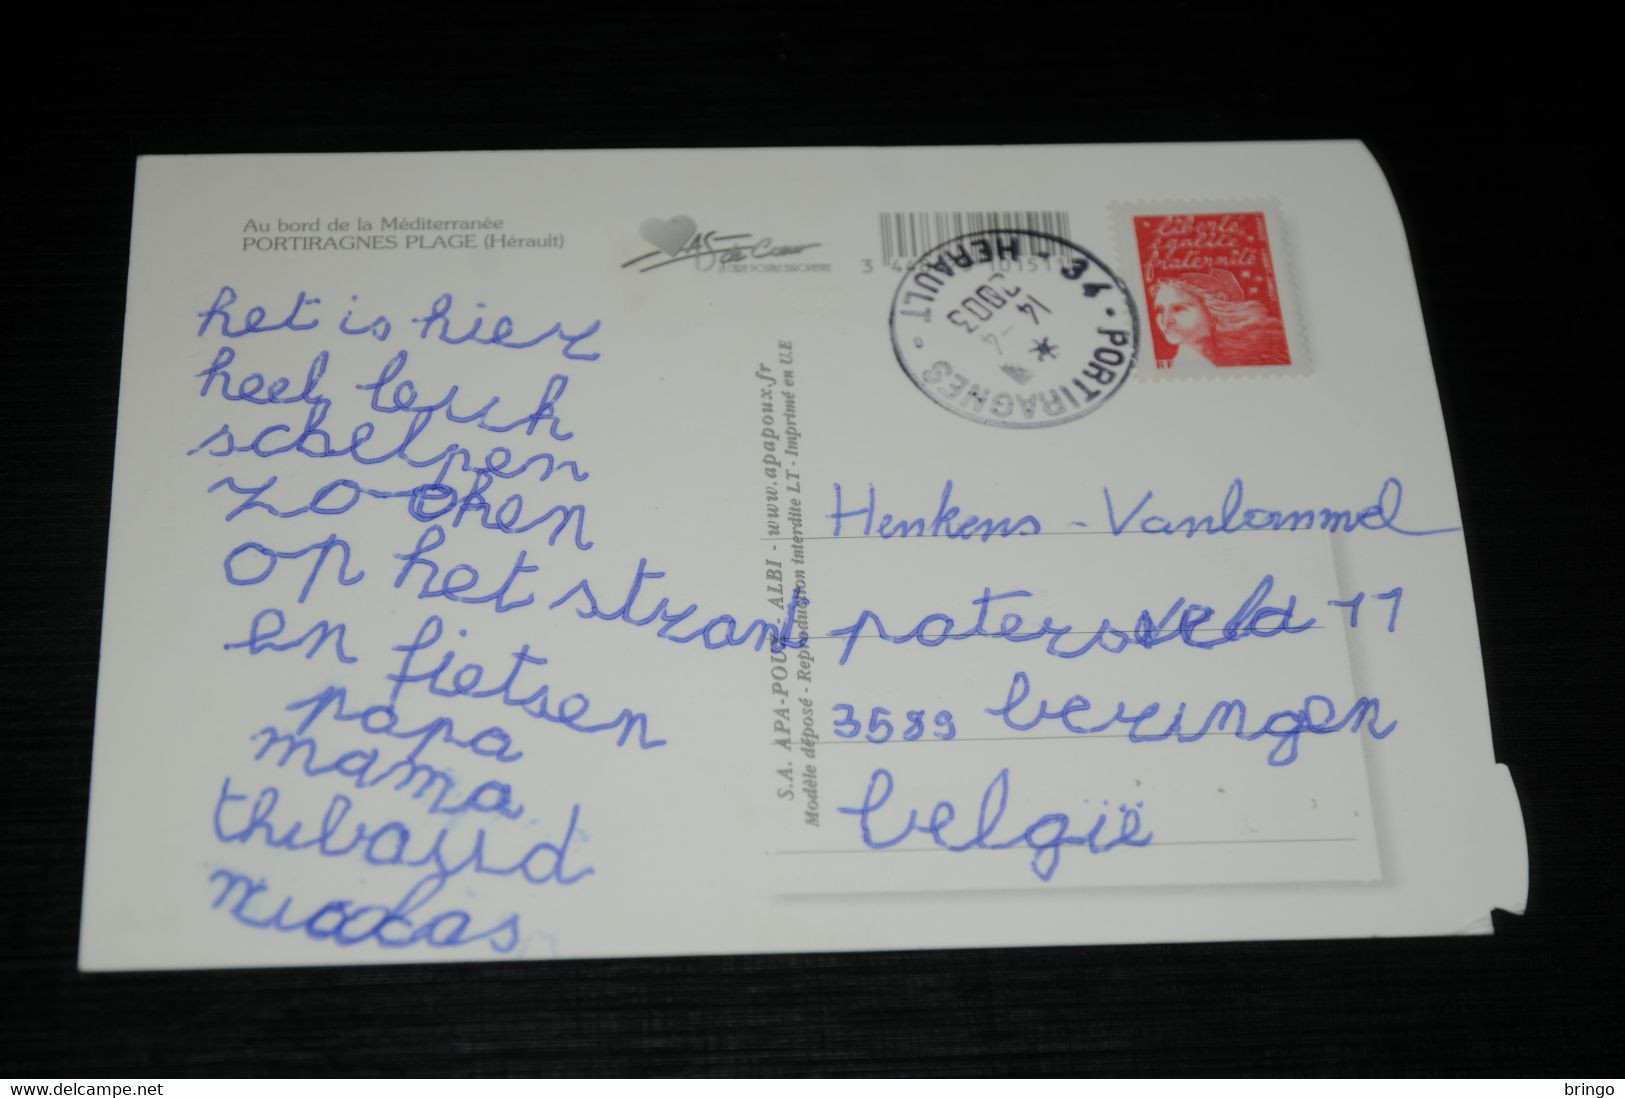 Au bord de la Méditerranée
PORTIRAGNES PLAGE (Hérault)
AS de Cœur
LA CARTE POSTALE EUROPEENNE
34 - HERAULT
PORTIRAGNES
14
2003
liberté
égalité
fraternité
RF
S.A. APA-POUX - ALBI - www.apapoux.fr
Modèle déposé - Reproduction interdite LT - Imprimé en U.E
het is hier
heel leuk
schelpen
zo-eken
op het strand
en fietsen
papa
mama
thibaud
Henkens - Vanlommel
patersveld 11
3583 beringen
belgië
bringo